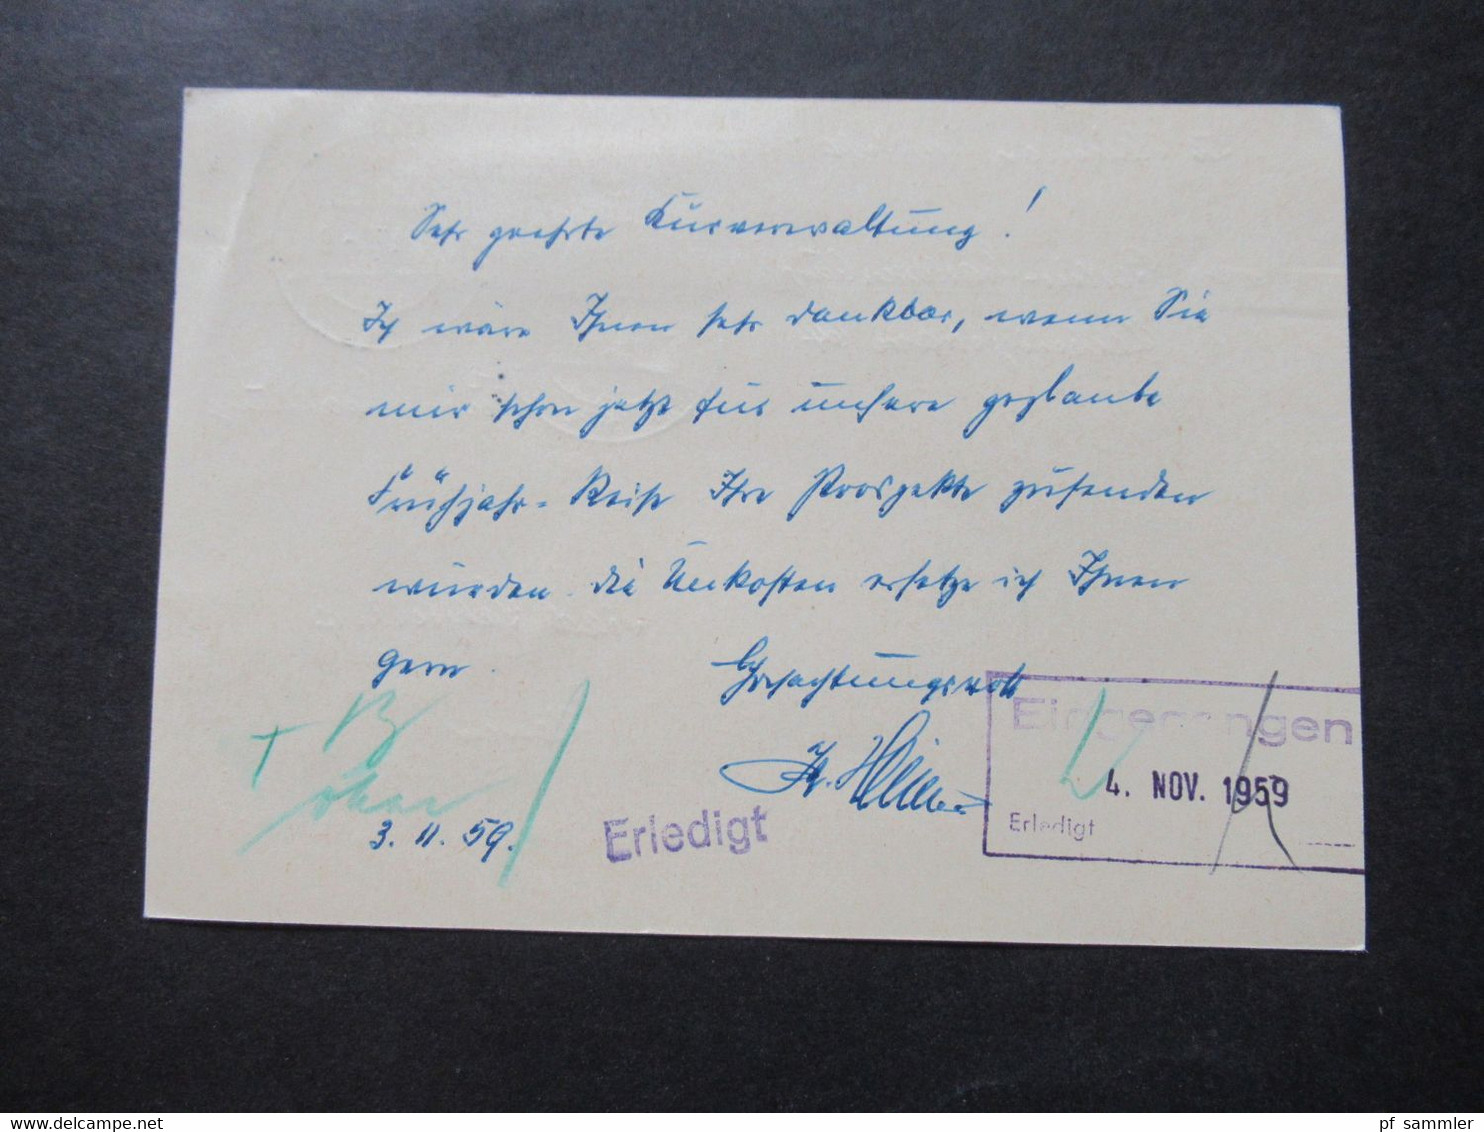 Sehr geehrte Kurverwaltung!
Ich wäre Ihnen sehr dankbar, wenn Sie
mir schon jetzt für unsere geplante
Frühjahr-Reise Ihre Prospekte zusenden
würden. Die Unkosten ersetze ich Ihnen
gern.
Hochachtungsvoll
3. 11. 59.
Erledigt
Eingegangen
4. NOV. 1959
Erledigt
www.delcampe.net
pf_sammler